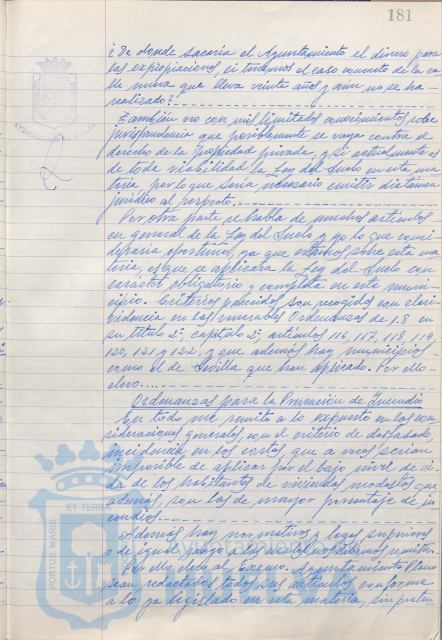 181
¿De donde sacaria el Ayuntamiento el dinero para
las expropiaciones, si tenemos el caso concreto de la ca
lle nueva que lleva veinte años y aun no se ha
realizado?
Tambien veo con mis limitados conocimientos sobre
jurisprudencia que posiblemente se vaya contra el
derecho de la Propiedad privada, y si actualmente es
de toda viabilidad la Ley del Suelo en esta ma
teria, por lo que seria necesario emitir dictamen
juridico al respecto.
Por otra parte se habla de muchos articulos
en general de la Ley del Suelo y yo lo que consi
deraria oportuno, ya que estamos sobre esta ma
teria, es que se aplicara la Ley del Suelo con
carácter obligatorio y completa en este muni
cipio. Criterios parecidos son recogidos con clari
videncia en las venerables Ordenanzas de 1.8
su titulo 2º, capitulo 2º, articulos 116, 117, 118, 119,
120, 121 y 122, y que además hay municipios
como el de Sevilla que han aplicado. Por ello
elevo....
Ordenanzas para la Prevencion de Incendio
En todo me remito a lo expuesto en las con
sideraciones generales, con el criterio de destacada
incidencia en los costos, que a veces serian
imposible de aplicar por el bajo nivel de vi
da de los habitantes de viviendas modestas que
además, son las de mayor porcentaje de in
cendios.
Además hay normativas y leyes superiores
o de igual rango a las cuales nos debemos remitir.
Por ello elevo al Excmo. Ayuntamiento Pleno
sean redactados todos sus articulos conforme
a lo ya legislado en esta materia, sin preten
ET TERRA
PORTUS MARIS